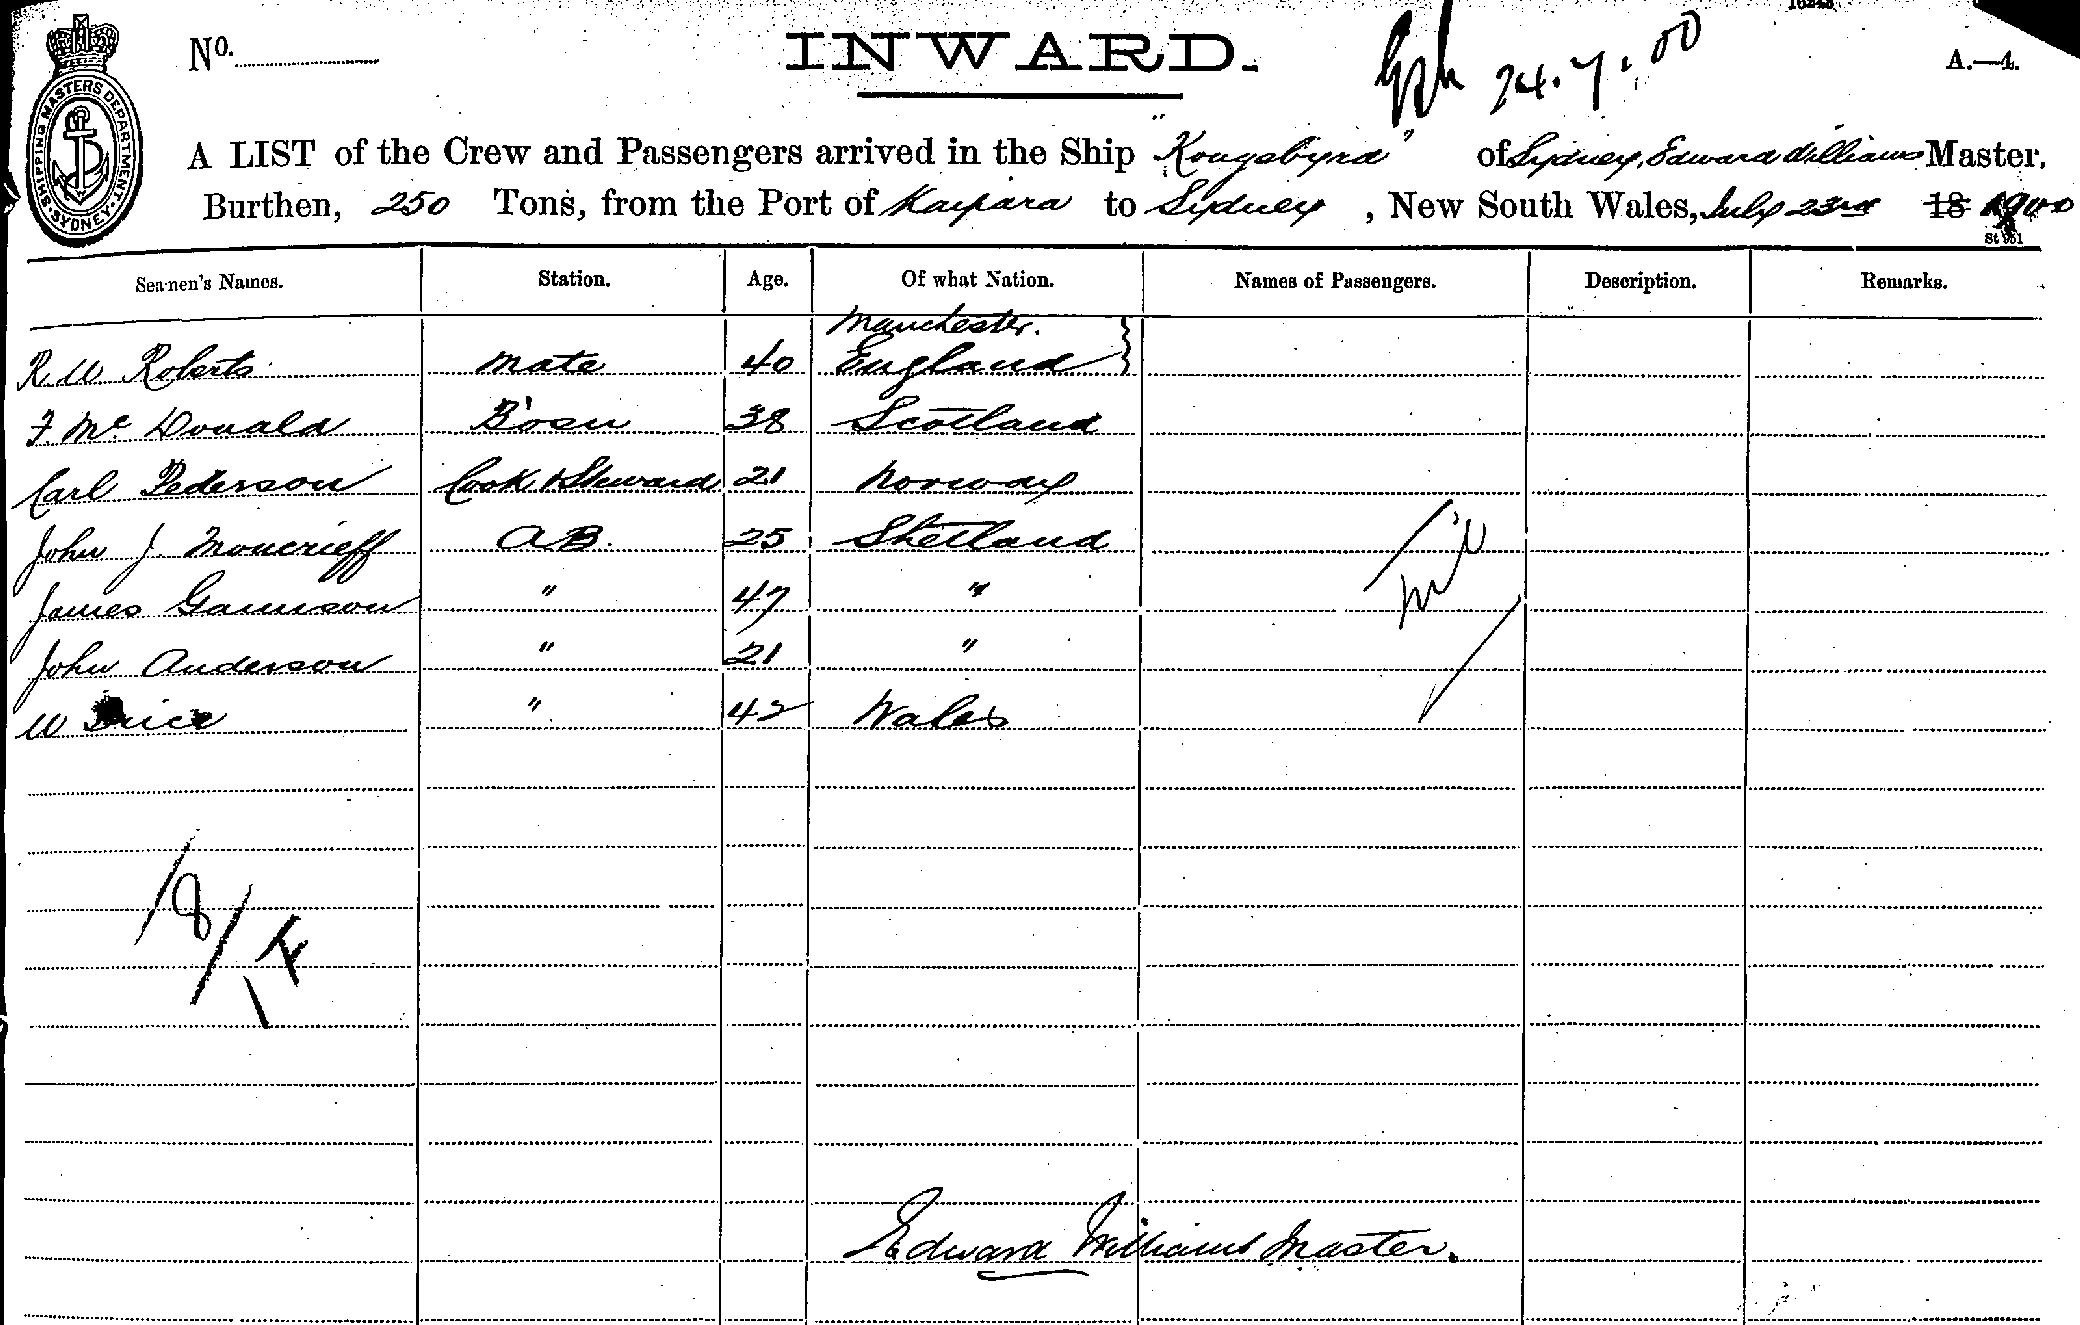 No.
INWARD.
24.7.00
A.—4.
SHIPPING MASTERS DEPARTMENT SYDNEY
A LIST of the Crew and Passengers arrived in the Ship "Kongsbyrd" of Sydney, Edward Williams Master,
Burthen, 250 Tons, from the Port of Kaipara to Sydney, New South Wales, July 23rd 18 1900
Seamen's Names. Station. Age. Of what Nation. Names of Passengers. Description. Remarks.
Manchester.
R W Roberts Mate 40 England
F Mc Donald B'osn 38 Scotland
Carl Pederson Cook & Steward 21 Norway
John J. Moncrieff AB. 25 Shetland
James Gannison " 47 "
nil
John Anderson " 21 "
W Price " 42 Wales
8
Edward Williams Master.